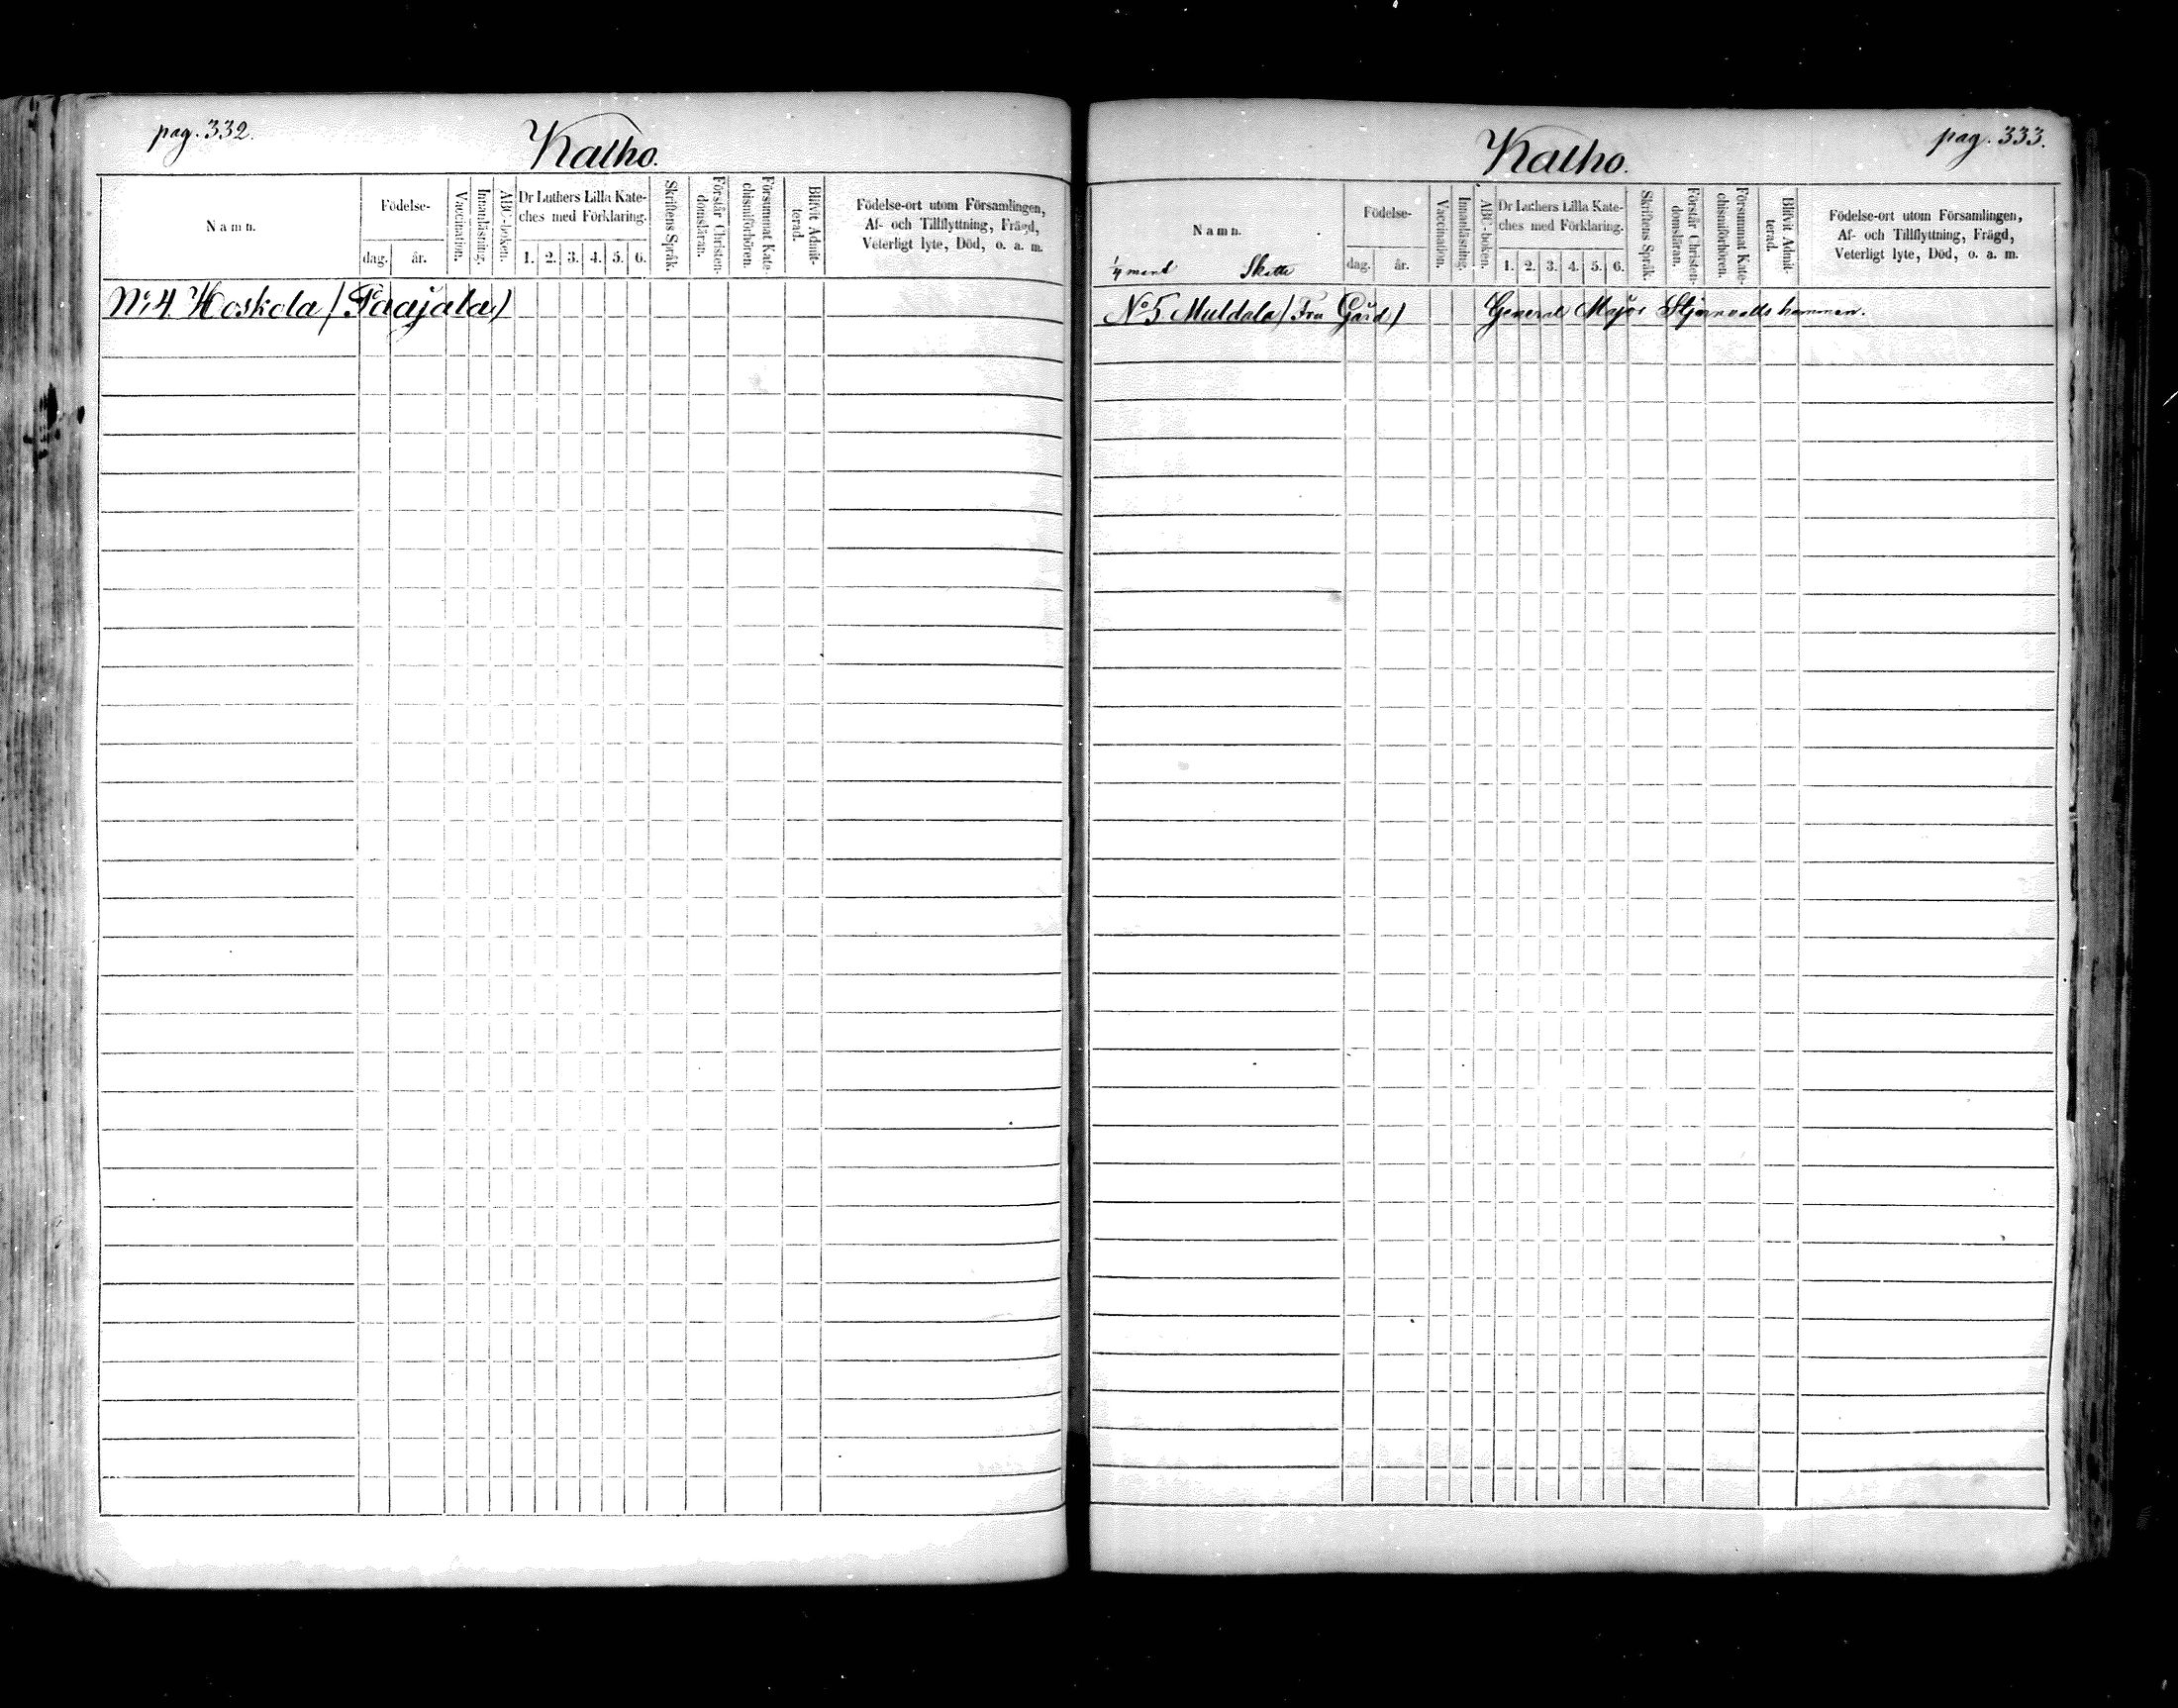 pag. 332.
Katho.
Namn.
Födelse-
dag.
år.
Vaccination.
Innanläsning.
ABC-boken.
Dr Luthers Lilla Kate-
ches med Förklaring.
1. 2. 3. 4. 5. 6.
Skriftens Språk.
Förstår Christen-
domsläran.
Försummat Kate-
chismiförhören.
Blifvit Admit-
terad.
Födelse-ort utom Församlingen,
Af- och Tillflyttning, Frägd,
Veterligt lyte, Död, o. a. m.
No 4 Hoskola / Paajala /
pag. 333.
Katho.
Namn.
1/4 mant Skatte
Födelse-
dag.
år.
Vaccination.
Innanläsning.
ABC-boken.
Dr Luthers Lilla Kate-
ches med Förklaring.
1. 2. 3. 4. 5. 6.
Skriftens Språk.
Förstår Christen-
domsläran.
Försummat Kate-
chismiförhören.
Blifvit Admit-
terad.
Födelse-ort utom Församlingen,
Af- och Tillflyttning, Frägd,
Veterligt lyte, Död, o. a. m.
No 5 Muldala / Fru Gård / General Major Stjernvalls